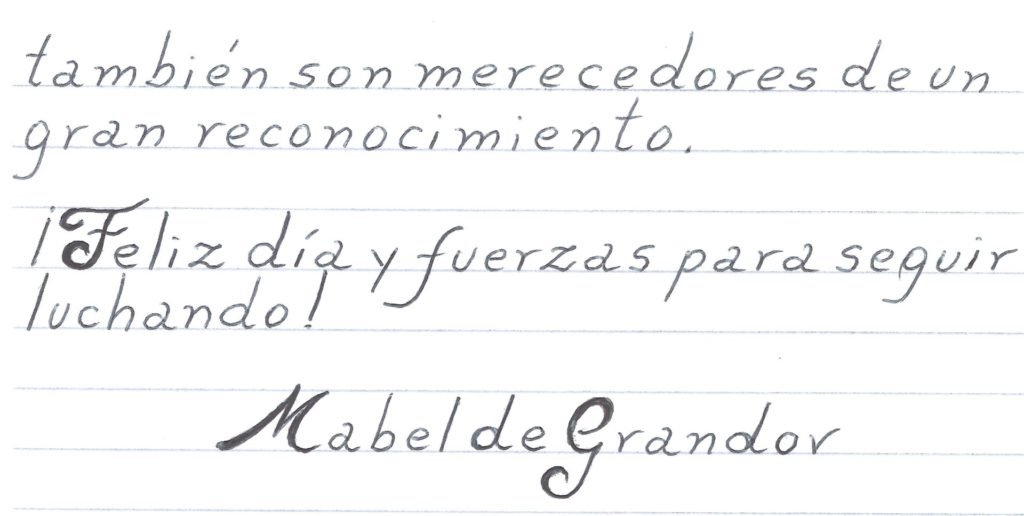 también son merecedores de un
gran reconocimiento.
¡Feliz día y fuerzas para seguir
luchando!
Mabel de Grandor